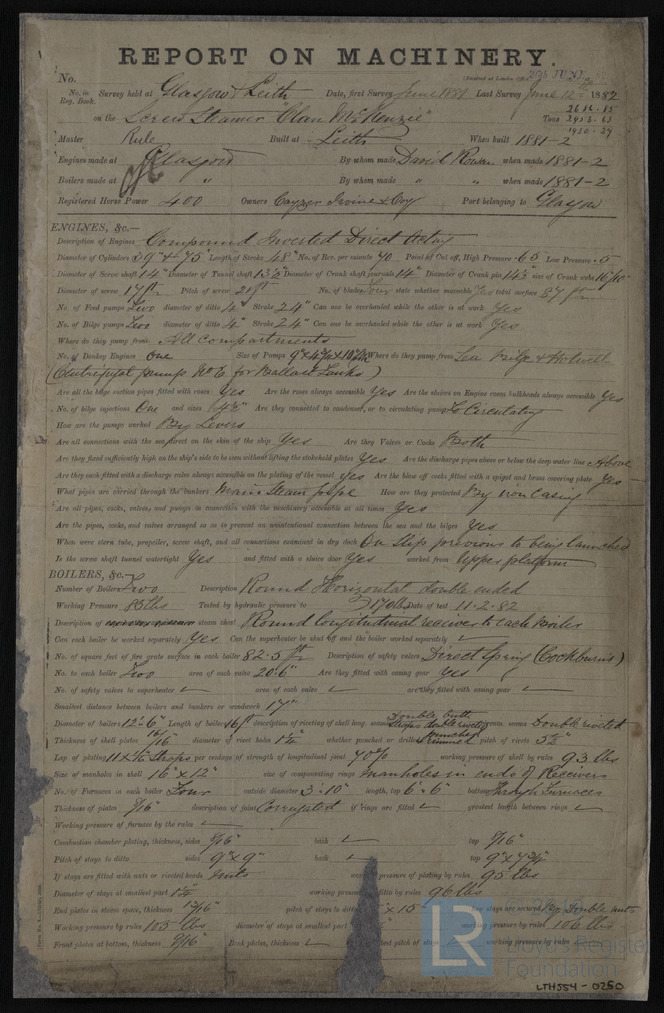 REPORT ON MACHINERY.
No. (Received at London Office
No. in Reg. Book. Survey held at Glasgow & Leith Date, first Survey June 1881 Last Survey June 12 1882
on the Screw Steamer "Clan McKenzie" Tons
Master Rule Built at Leith When built 1881-2
Engines made at Glasgow By whom made David Rowan when made 1881-2
Boilers made at " By whom made " " when made 1881-2
Registered Horse Power 400 Owners Cayzer Irvine & Coy Port belonging to Glasgow
ENGINES, &c.—
Description of Engines Compound Inverted Direct Acting
Diameter of Cylinders 39" & 75" Length of Stroke 48" No. of Rev. per minute 70 Point of Cut off, High Pressure .65 Low Pressure .5
Diameter of Screw shaft 14" Diameter of Tunnel shaft 13½" Diameter of Crank shaft journals 14" Diameter of Crank pin 14½" size of Crank webs
Diameter of screw 17 ft Pitch of screw 21 ft No. of blades Four state whether moveable Yes total surface 87 ft
No. of Feed pumps Two diameter of ditto 4" Stroke 24" Can one be overhauled while the other is at work Yes
No. of Bilge pumps Two diameter of ditto 4" Stroke 24" Can one be overhauled while the other is at work Yes
Where do they pump from All Compartments
No. of Donkey Engines One Size of Pumps Where do they pump from Sea Bilge & Hotwell
(Centrifugal pump for Ballast Tanks)
Are all the bilge suction pipes fitted with roses Yes Are the roses always accessible Yes Are the sluices on Engine room bulkheads always accessible Yes
No. of bilge injections One and sizes 4½" Are they connected to condenser, or to circulating pump To Circulating
How are the pumps worked By Levers
Are all connections with the sea direct on the skin of the ship Yes Are they Valves or Cocks Both
Are they fixed sufficiently high on the ship's side to be seen without lifting the stokehold plates Yes Are the discharge pipes above or below the deep water line Above
Are they each fitted with a discharge valve always accessible on the plating of the vessel Yes Are the blow off cocks fitted with a spigot and brass covering plate Yes
What pipes are carried through the bunkers Main Steam pipe How are they protected By iron casing
Are all pipes, cocks, valves, and pumps in connection with the machinery accessible at all times Yes
Are the pipes, cocks, and valves arranged so as to prevent an unintentional connection between the sea and the bilges Yes
When were stern tube, propeller, screw shaft, and all connections examined in dry dock On Slip previous to being launched
Is the screw shaft tunnel watertight Yes and fitted with a sluice door Yes worked from Upper platform
BOILERS, &c.—
Number of Boilers Two Description Round Horizontal double ended
Working Pressure 85 lbs Tested by hydraulic pressure to 170 lbs Date of test 11-2-82
Description of steam chest Round longitudinal receiver to each Boiler
Can each boiler be worked separately Yes Can the superheater be shut off and the boiler worked separately
No. of square feet of fire grate surface in each boiler 82.5 ft Description of safety valves Direct Spring (Cockburns)
No. to each boiler Two area of each valve 20.6" Are they fitted with easing gear Yes
No. of safety valves to superheater area of each valve are they fitted with easing gear
Smallest distance between boilers and bunkers or woodwork 17"
Diameter of boilers 12'-6" Length of boilers 16 ft description of riveting of shell long. seams Double butt Straps double rivetted circum seams Double rivetted
Thickness of shell plates 14/16" diameter of rivet holes 1¼" whether punched or drilled Punched Rimmed pitch of rivets
Lap of plating Straps per centage of strength of longitudinal joint 70% working pressure of shell by rules 93 lbs
Size of manholes in shell 16" x 12" size of compensating rings Manholes in ends of Receivers
No. of Furnaces in each boiler Four outside diameter 3'-10" length, top 6'-6" bottom Through Furnaces
Thickness of plates 9/16" description of joint Corrugated if rings are fitted greatest length between rings
Working pressure of furnace by the rules
Combustion chamber plating, thickness, sides 9/16" back top 9/16"
Pitch of stays to ditto sides 9" x 9" back top
If stays are fitted with nuts or riveted heads Nuts working pressure of plating by rules 95 lbs
Diameter of stays at smallest part 1¼" working pressure of ditto by rules 96 lbs
End plates in steam space, thickness 13/16" pitch of stays to ditto x 15" how stays are secured By double nuts
Working pressure by rules 105 lbs diameter of stays at smallest part working pressure by rules 106 lbs
Front plates at bottom, thickness 9/16" Back plates, thickness pitch of stays working pressure by rules
LR
Lloyd's Register
Foundation
LTHS54 - 0250